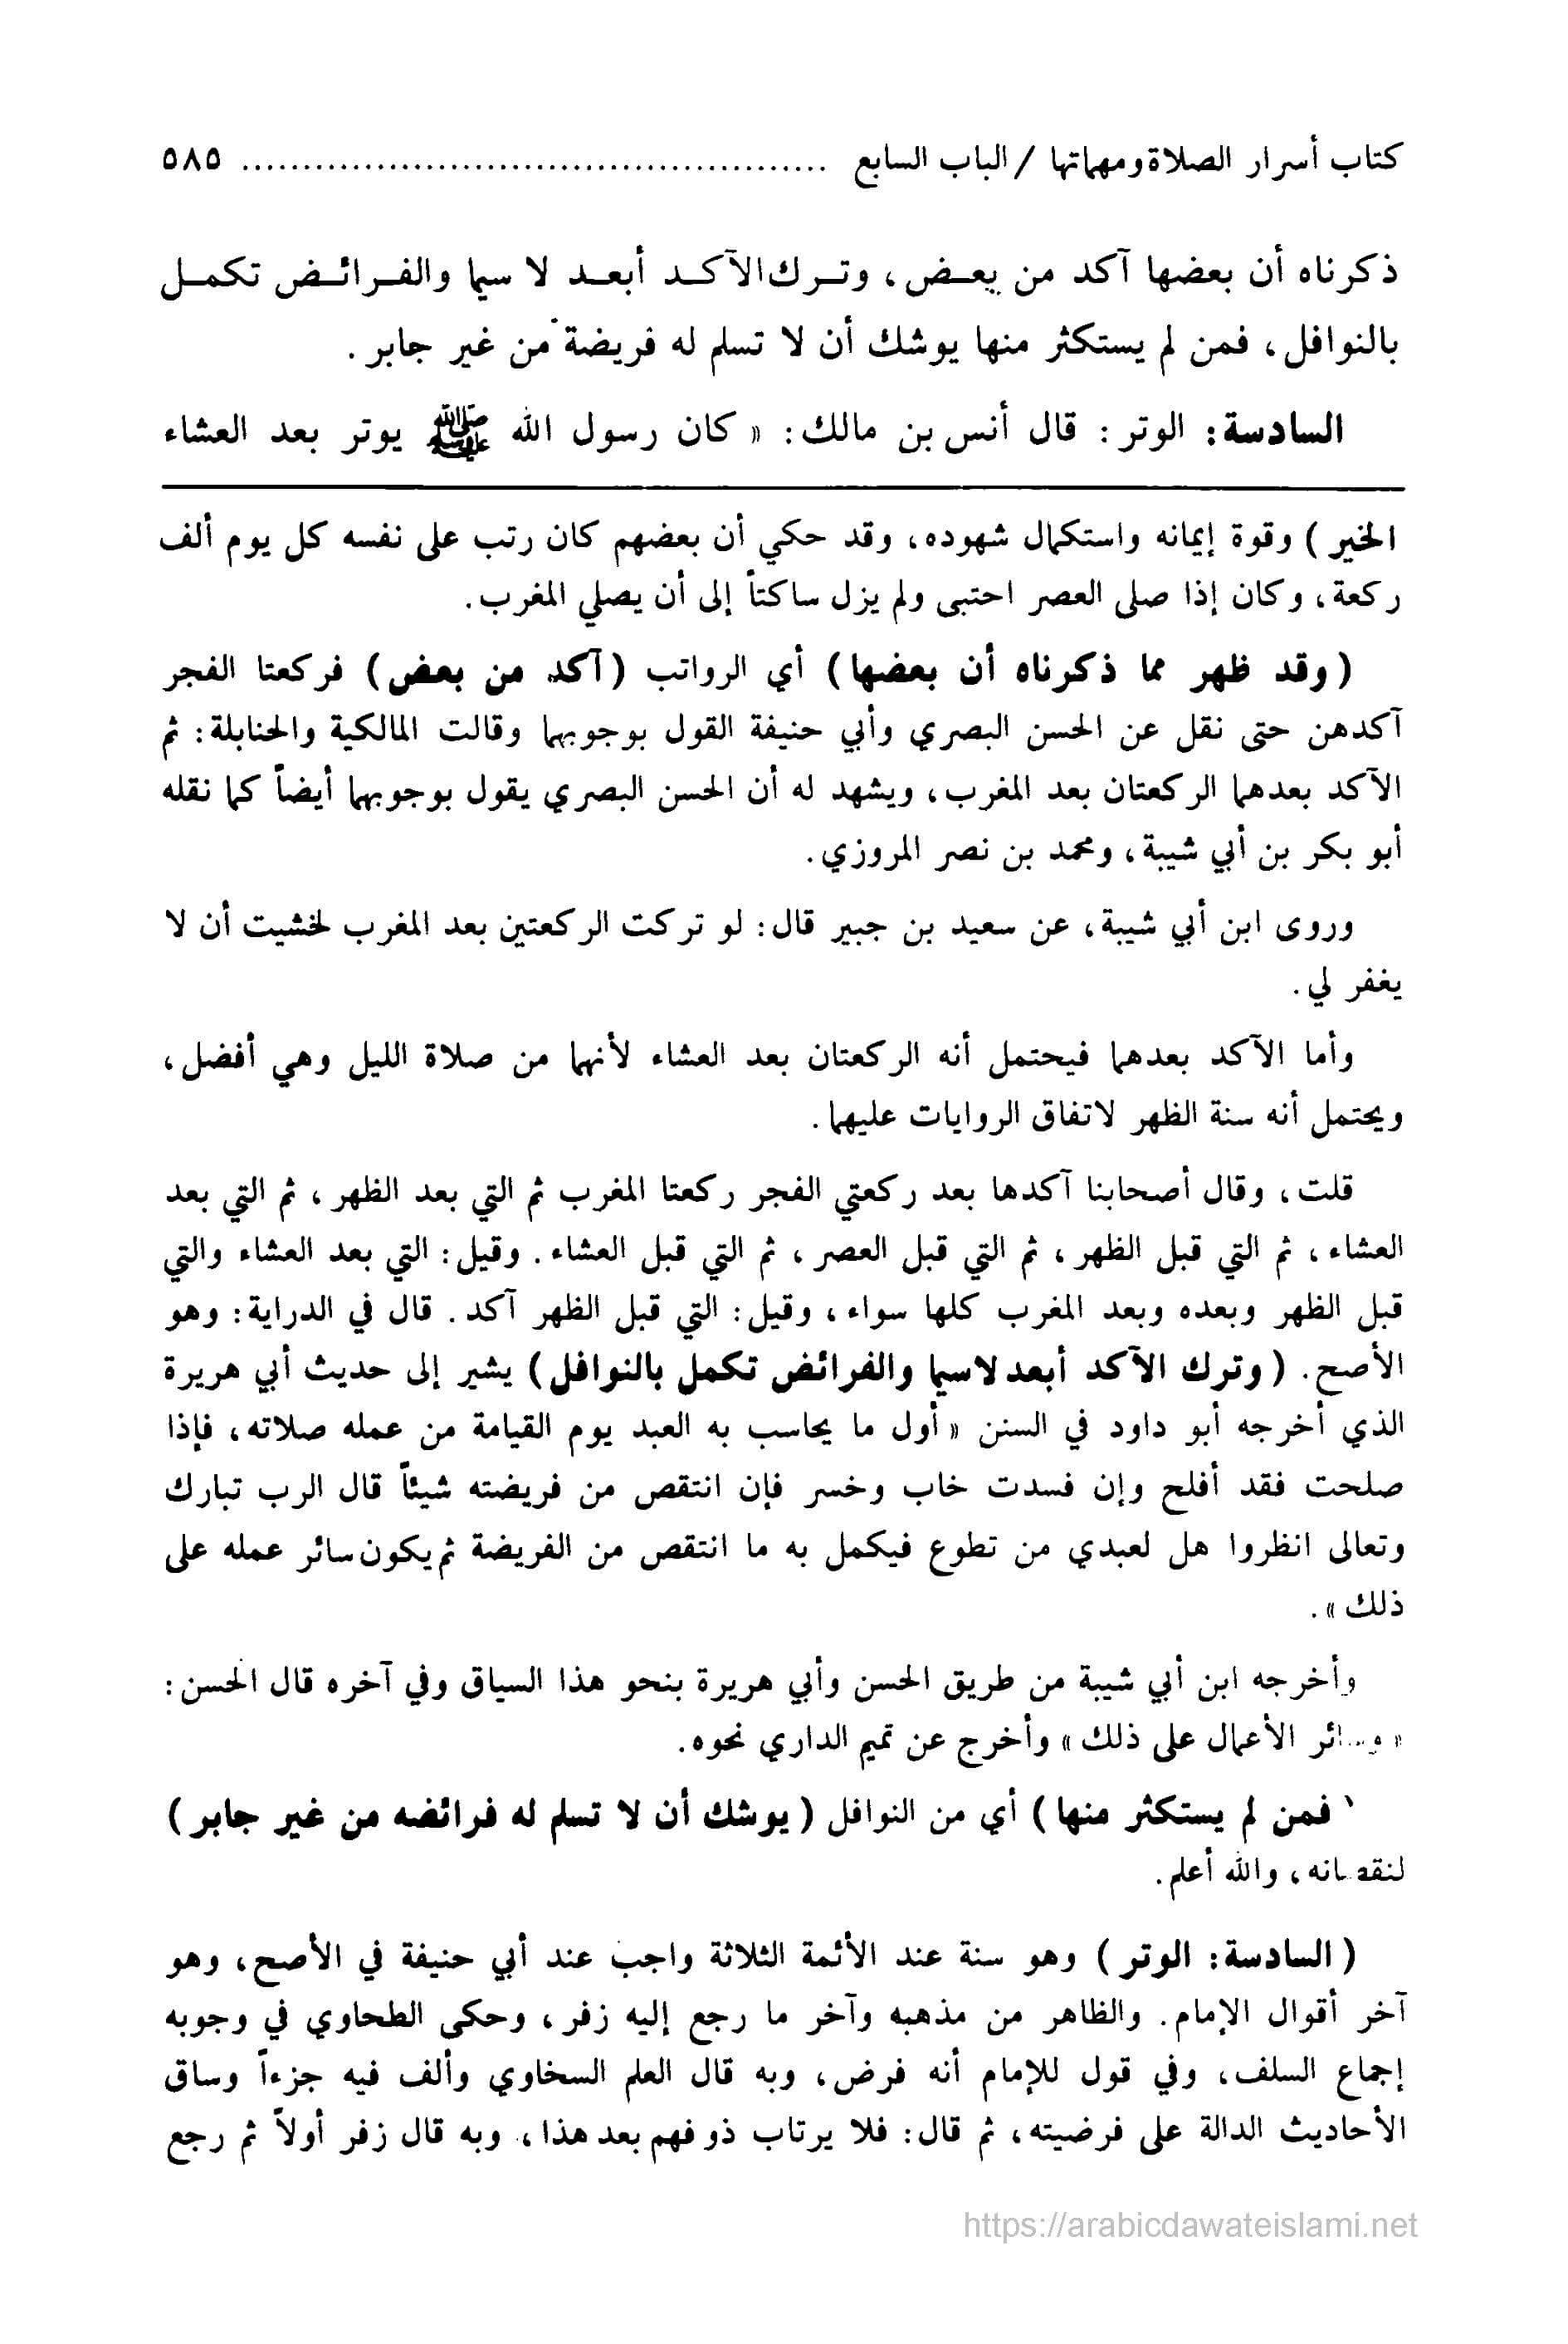 كتاب أسرار الصلاة ومهماتها / الباب السابع ................................................ ٥٨٥
ذكرناه أن بعضها آكد من بعـض، وتـرك الآكـد أبعـد لا سيما والفـرائـض تكمـل
بالنوافل، فمن لم يستكثر منها يوشك أن لا تسلم له فريضة من غير جابر.
السادسة: الوتر: قال أنس بن مالك: « كان رسول الله ﷺ يوتر بعد العشاء
الخير ) وقوة إيمانه واستكمال شهوده، وقد حكي أن بعضهم كان رتب على نفسه كل يوم ألف
ركعة، وكان إذا صلى العصر احتبى ولم يزل ساكتاً إلى أن يصلي المغرب.
( وقد ظهر مما ذكرناه أن بعضها ) أي الرواتب ( آكد من بعض ) فركعتا الفجر
آكدهن حتى نقل عن الحسن البصري وأبي حنيفة القول بوجوبهما وقالت المالكية والحنابلة: ثم
الآكد بعدهما الركعتان بعد المغرب، ويشهد له أن الحسن البصري يقول بوجوبهما أيضاً كما نقله
أبو بكر بن أبي شيبة، ومحمد بن نصر المروزي.
وروى ابن أبي شيبة، عن سعيد بن جبير قال: لو تركت الركعتين بعد المغرب لخشيت أن لا
يغفر لي.
وأما الآكد بعدهما فيحتمل أنه الركعتان بعد العشاء لأنهما من صلاة الليل وهي أفضل،
ويحتمل أنه سنة الظهر لاتفاق الروايات عليهما.
قلت، وقال أصحابنا آكدها بعد ركعتي الفجر ركعتا المغرب ثم التي بعد الظهر، ثم التي بعد
العشاء، ثم التي قبل الظهر، ثم التي قبل العصر، ثم التي قبل العشاء. وقيل: التي بعد العشاء والتي
قبل الظهر وبعده وبعد المغرب كلها سواء، وقيل: التي قبل الظهر آكد. قال في الدراية: وهو
الأصح. ( وترك الآكد أبعد لاسيما والفرائض تكمل بالنوافل ) يشير إلى حديث أبي هريرة
الذي أخرجه أبو داود في السنن « أول ما يحاسب به العبد يوم القيامة من عمله صلاته، فإذا
صلحت فقد أفلح وإن فسدت خاب وخسر فإن انتقص من فريضته شيئاً قال الرب تبارك
وتعالى انظروا هل لعبدي من تطوع فيكمل به ما انتقص من الفريضة ثم يكون سائر عمله على
ذلك ».
وأخرجه ابن أبي شيبة من طريق الحسن وأبي هريرة بنحو هذا السياق وفي آخره قال الحسن:
« وسائر الأعمال على ذلك » وأخرج عن تميم الداري نحوه.
( فمن لم يستكثر منها ) أي من النوافل ( يوشك أن لا تسلم له فرائضه من غير جابر )
لنقصانه، والله أعلم.
( السادسة: الوتر ) وهو سنة عند الأئمة الثلاثة واجب عند أبي حنيفة في الأصح، وهو
آخر أقوال الإمام. والظاهر من مذهبه وآخر ما رجع إليه زفر، وحكى الطحاوي في وجوبه
إجماع السلف، وفي قول للإمام أنه فرض، وبه قال العلم السخاوي وألف فيه جزءاً وساق
الأحاديث الدالة على فرضيته، ثم قال: فلا يرتاب ذو فهم بعد هذا، وبه قال زفر أولاً ثم رجع
https://arabicdawateislami.net